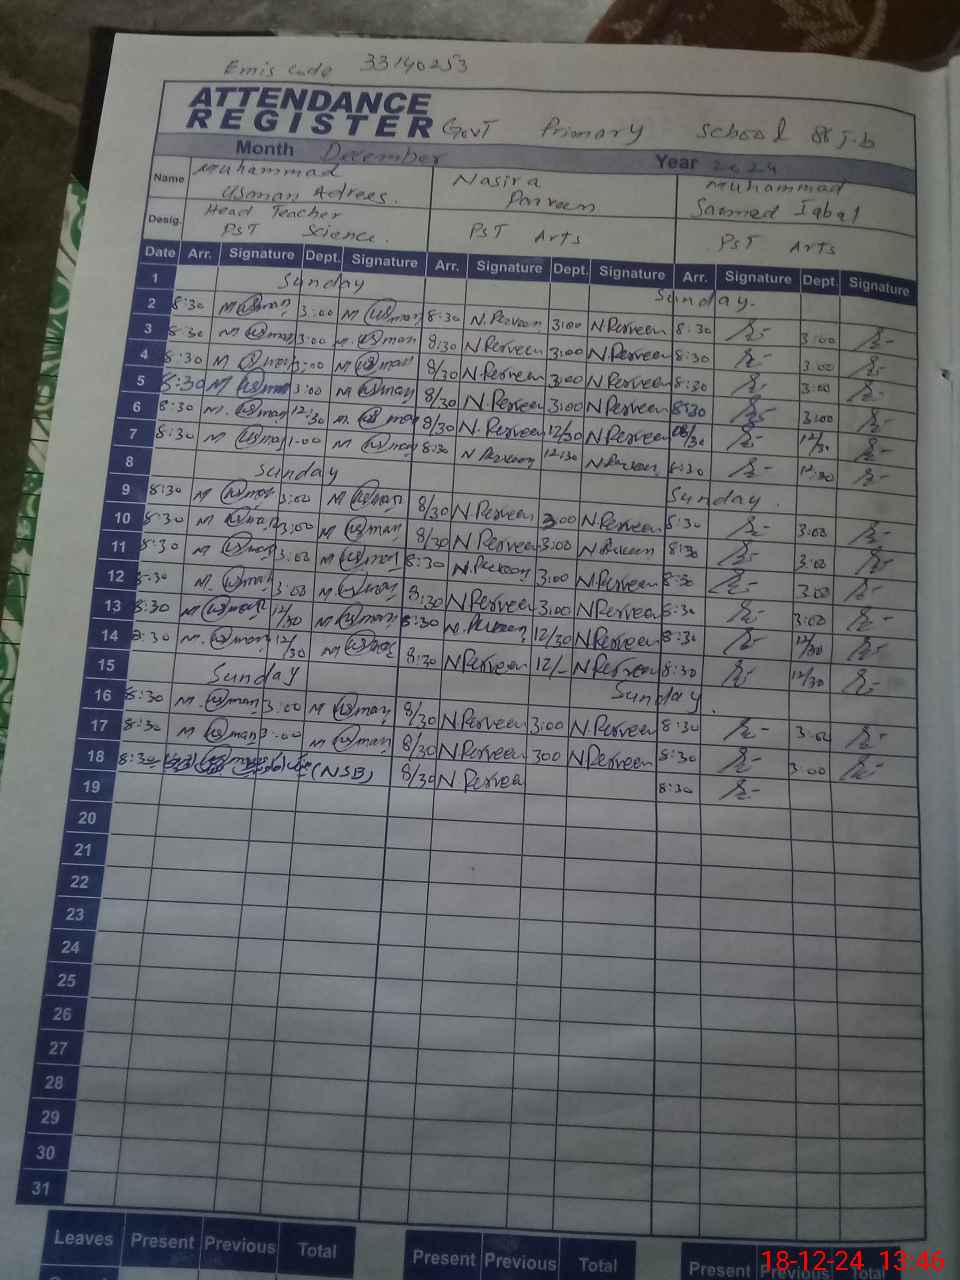 Emis code 33140253
ATTENDANCE
REGISTER Govt Primary School 88 J.b
Month December Year 2024
Name Muhammad Usman Adrees. Nasira Parveen Muhammad Sarmad Iqbal
Desig. Head Teacher PST Science. PST Arts PST Arts
Date Arr. Signature Dept. Signature Arr. Signature Dept. Signature Arr. Signature Dept. Signature
1 Sunday Sunday.
2 8:30 M Usman 3:00 M Usman 8:30 N. Perveen 3:00 N Perveen 8:30 3:00
3 8:30 M Usman 3:00 M. Usman 8:30 N Perveen 3:00 N Perveen 8:30 3:00
4 8:30 M Usman 3:00 M Usman 8/30 N Perveen 3:00 N Perveen 8:30 3:00
5 8:30 M Usman 3:00 M Usman 8/30 N. Perveen 3:00 N Perveen 8:30 3:00
6 8:30 M. Usman 12:30 M. Usman 8/30 N. Perveen 12/30 N Perveen 08/30 12/30
7 8:30 M Usman 1:00 M Usman 8:30 N Perveen 12:30 N Perveen 8:30 12:30
8 Sunday Sunday.
9 8:30 M Usman 3:00 M Usman 8/30 N. Perveen 3:00 N. Perveen 8:30 3:00
10 8:30 M Usman 3:00 M Usman 8/30 N Perveen 3:00 N Perveen 8:30 3:00
11 8:30 M Usman 3:00 M Usman 8:30 N. Perveen 3:00 N Perveen 8:30 3:00
12 8:30 M. Usman 3:00 M. Usman 8:30 N Perveen 3:00 N Perveen 8:30 3:00
13 8:30 M Usman 12/30 M Usman 8:30 N. Perveen 12/30 N Perveen 8:30 12/30
14 8:30 M. Usman 12/30 M Usman 8:30 N Perveen 12/- N Perveen 8:30 12/30
15 Sunday Sunday.
16 8:30 M. Usman 3:00 M Usman 8/30 N Perveen 3:00 N. Perveen 8:30 3:00
17 8:30 M Usman 3:00 M Usman 8/30 N Perveen 300 N Perveen 8:30 3:00
18 8:30 (NSB) 8/30 N Perveen 8:30
19
20
21
22
23
24
25
26
27
28
29
30
31
Leaves Present Previous Total Present Previous Total Present Previous Total
18-12-24 13:46